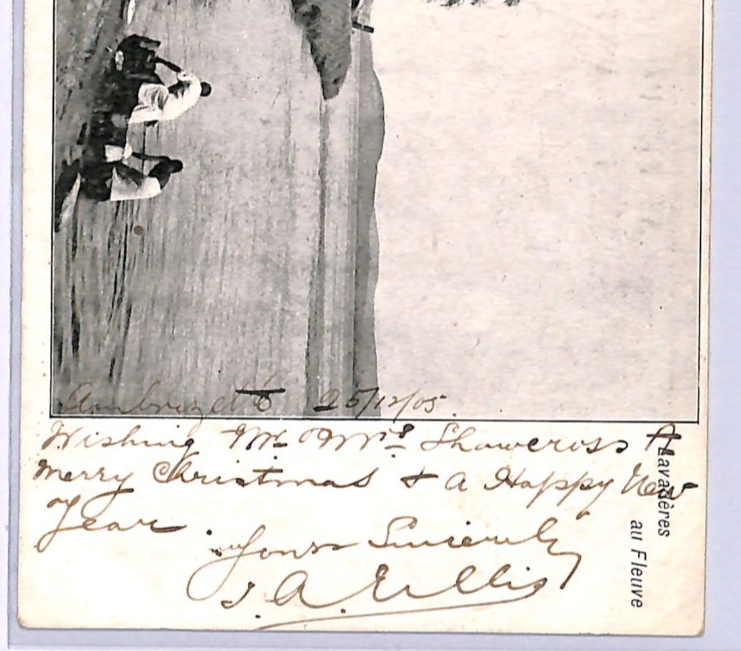 Ambrizete 25/12/05
Wishing Mr & Mrs Shawcross A
Merry Christmas & a Happy New
Year.
Yours Sincerely
J. A. Ellis
Lavadères
au Fleuve